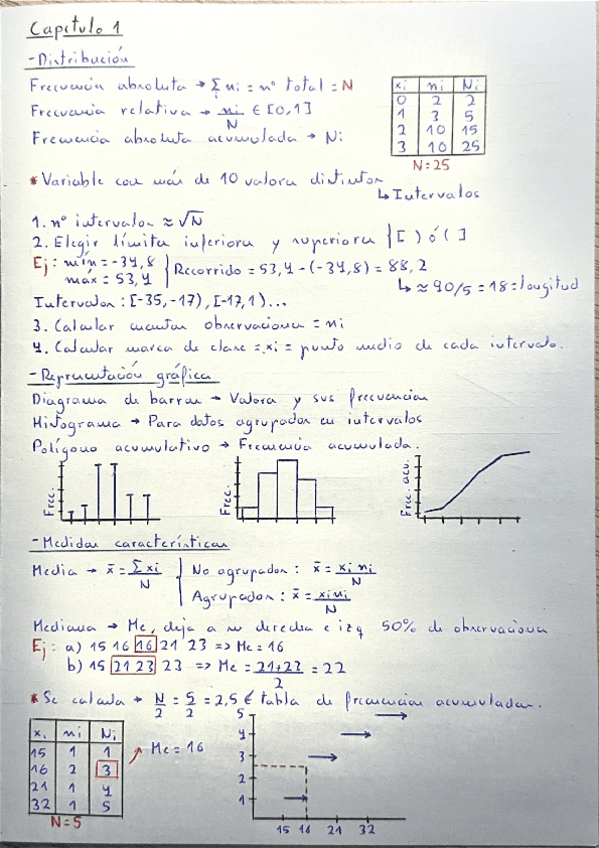 Capítulo 1
- Distribución
Frecuencia absoluta → Σ ni = nº total = N
i
Frecuencia relativa → ni/N ∈ [0,1]
Frecuencia absoluta acumulada → Ni
xi ni Ni
0 2 2
1 3 5
2 10 15
3 10 25
N=25
* Variable con más de 10 valores distintos
↳ Intervalos
1. nº intervalos ≈ √N
2. Elegir límites inferiores y superiores { [ ) ó ( ]
Ej: mín = -34,8
máx = 53,4
Recorrido = 53,4 - (-34,8) = 88,2
↳ ≈ 90/5 = 18 = longitud
Intervalos: [-35,-17), [-17,1)...
3. Calcular cuantas observaciones = ni
4. Calcular marca de clase = xi = punto medio de cada intervalo.
- Representación gráfica
Diagrama de barras → Valores y sus frecuencias
Histograma → Para datos agrupados en intervalos
Polígono acumulativo → Frecuencia acumulada.
Frec.
Frec.
Frec. acu.
- Medidas características
Media → x̄ = Σxi/N
No agrupados: x̄ = xi ni/N
Agrupados: x̄ = xi ni/N
Mediana → Me, deja a su derecha e izq 50% de observaciones
Ej: a) 15 16 16 21 23 => Me = 16
b) 15 21 23 23 => Me = 21+23/2 = 22
* Se calcula → N/2 = 5/2 = 2,5 € tabla de frecuencias acumuladas.
xi ni Ni
15 1 1
16 2 3
21 1 4
32 1 5
N=5
Me = 16
5
4
3
2
1
15 16 21 32